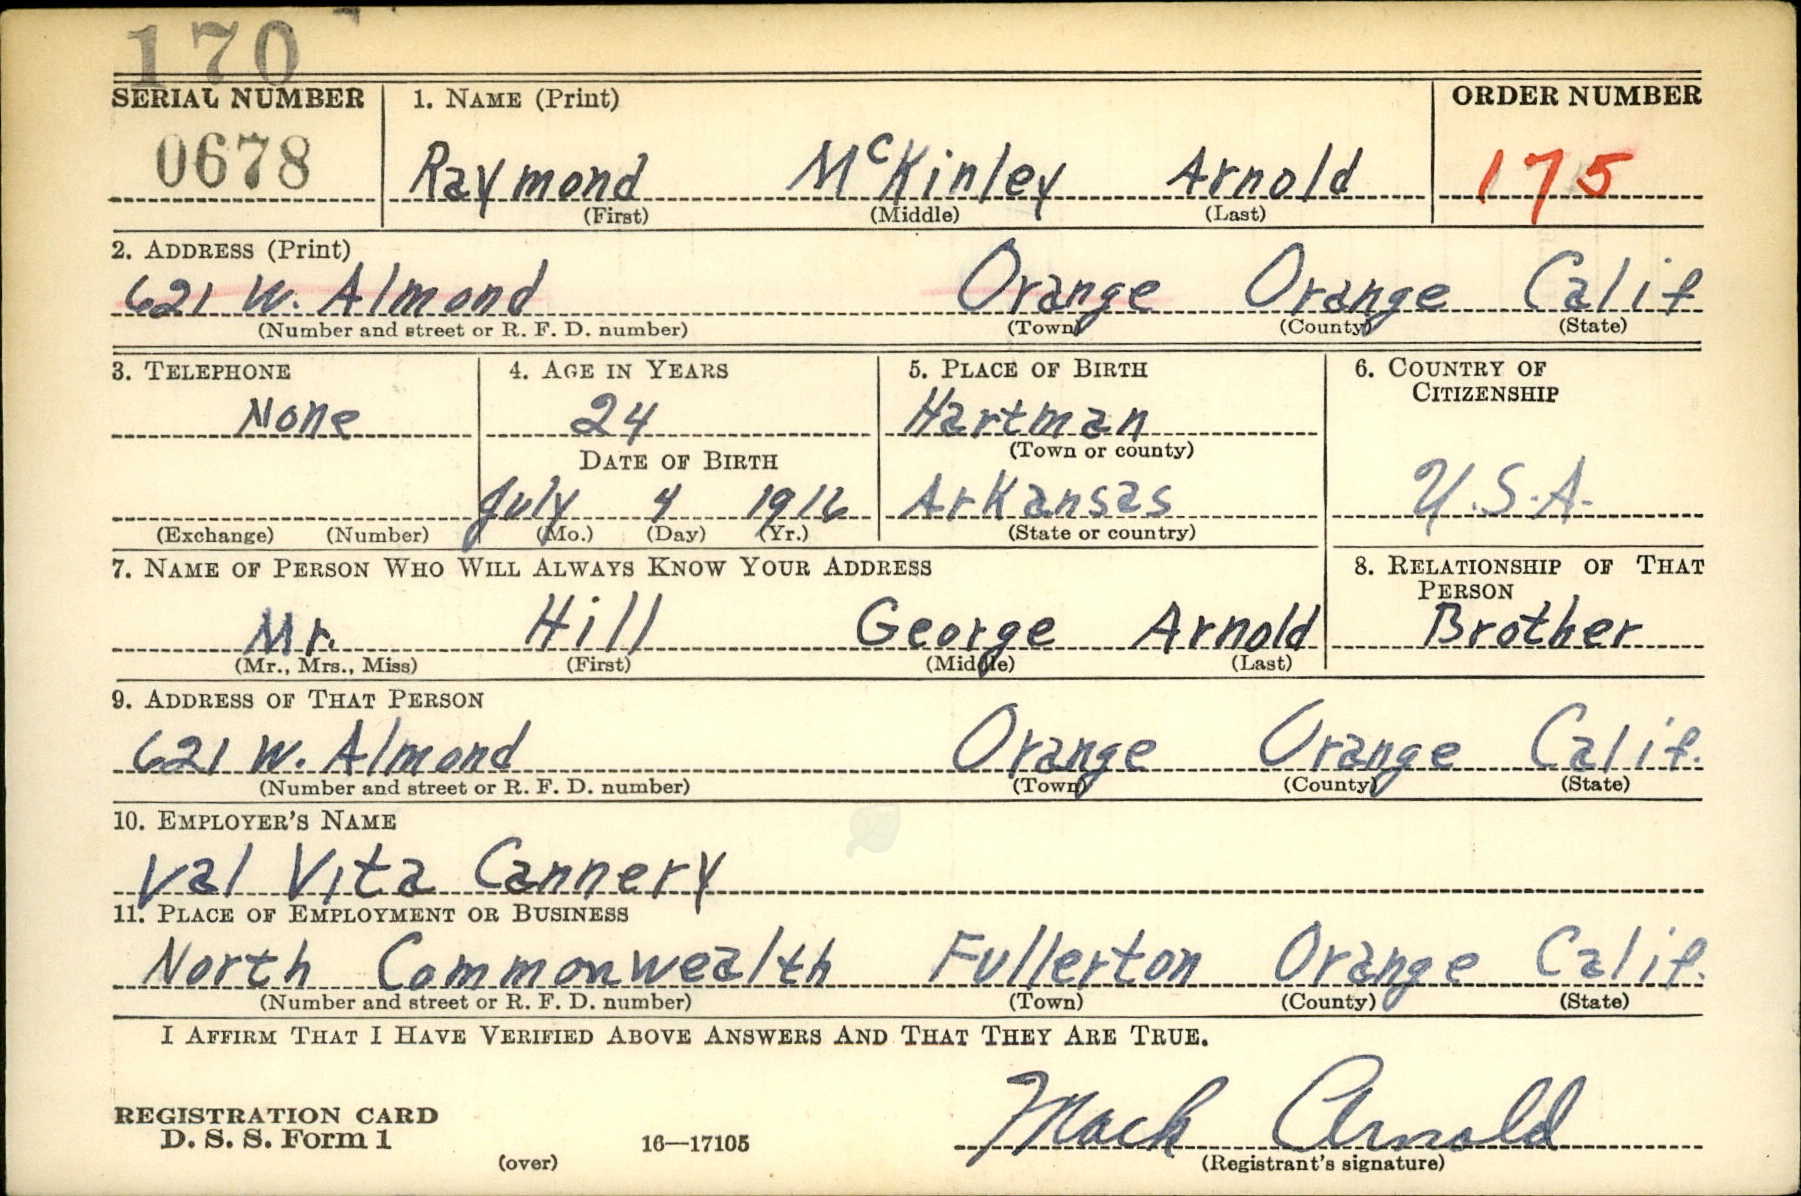 170
SERIAL NUMBER 1. NAME (Print) ORDER NUMBER
0678 Raymond McKinley Arnold 175
(First) (Middle) (Last)
2. ADDRESS (Print)
621 W. Almond Orange Orange Calif
(Number and street or R. F. D. number) (Town) (County) (State)
3. TELEPHONE 4. AGE IN YEARS 5. PLACE OF BIRTH 6. COUNTRY OF
CITIZENSHIP
None 24 Hartman
(Town or county)
DATE OF BIRTH
July 4 1916 Arkansas U.S.A.
(Exchange) (Number) (Mo.) (Day) (Yr.) (State or country)
7. NAME OF PERSON WHO WILL ALWAYS KNOW YOUR ADDRESS 8. RELATIONSHIP OF THAT
PERSON
Mr. Hill George Arnold Brother
(Mr., Mrs., Miss) (First) (Middle) (Last)
9. ADDRESS OF THAT PERSON
621 W. Almond Orange Orange Calif.
(Number and street or R. F. D. number) (Town) (County) (State)
10. EMPLOYER'S NAME
Val Vita Cannery
11. PLACE OF EMPLOYMENT OR BUSINESS
North Commonwealth Fullerton Orange Calif.
(Number and street or R. F. D. number) (Town) (County) (State)
I AFFIRM THAT I HAVE VERIFIED ABOVE ANSWERS AND THAT THEY ARE TRUE.
REGISTRATION CARD
D. S. S. Form 1 16—17105 Mack Arnold
(over) (Registrant's signature)